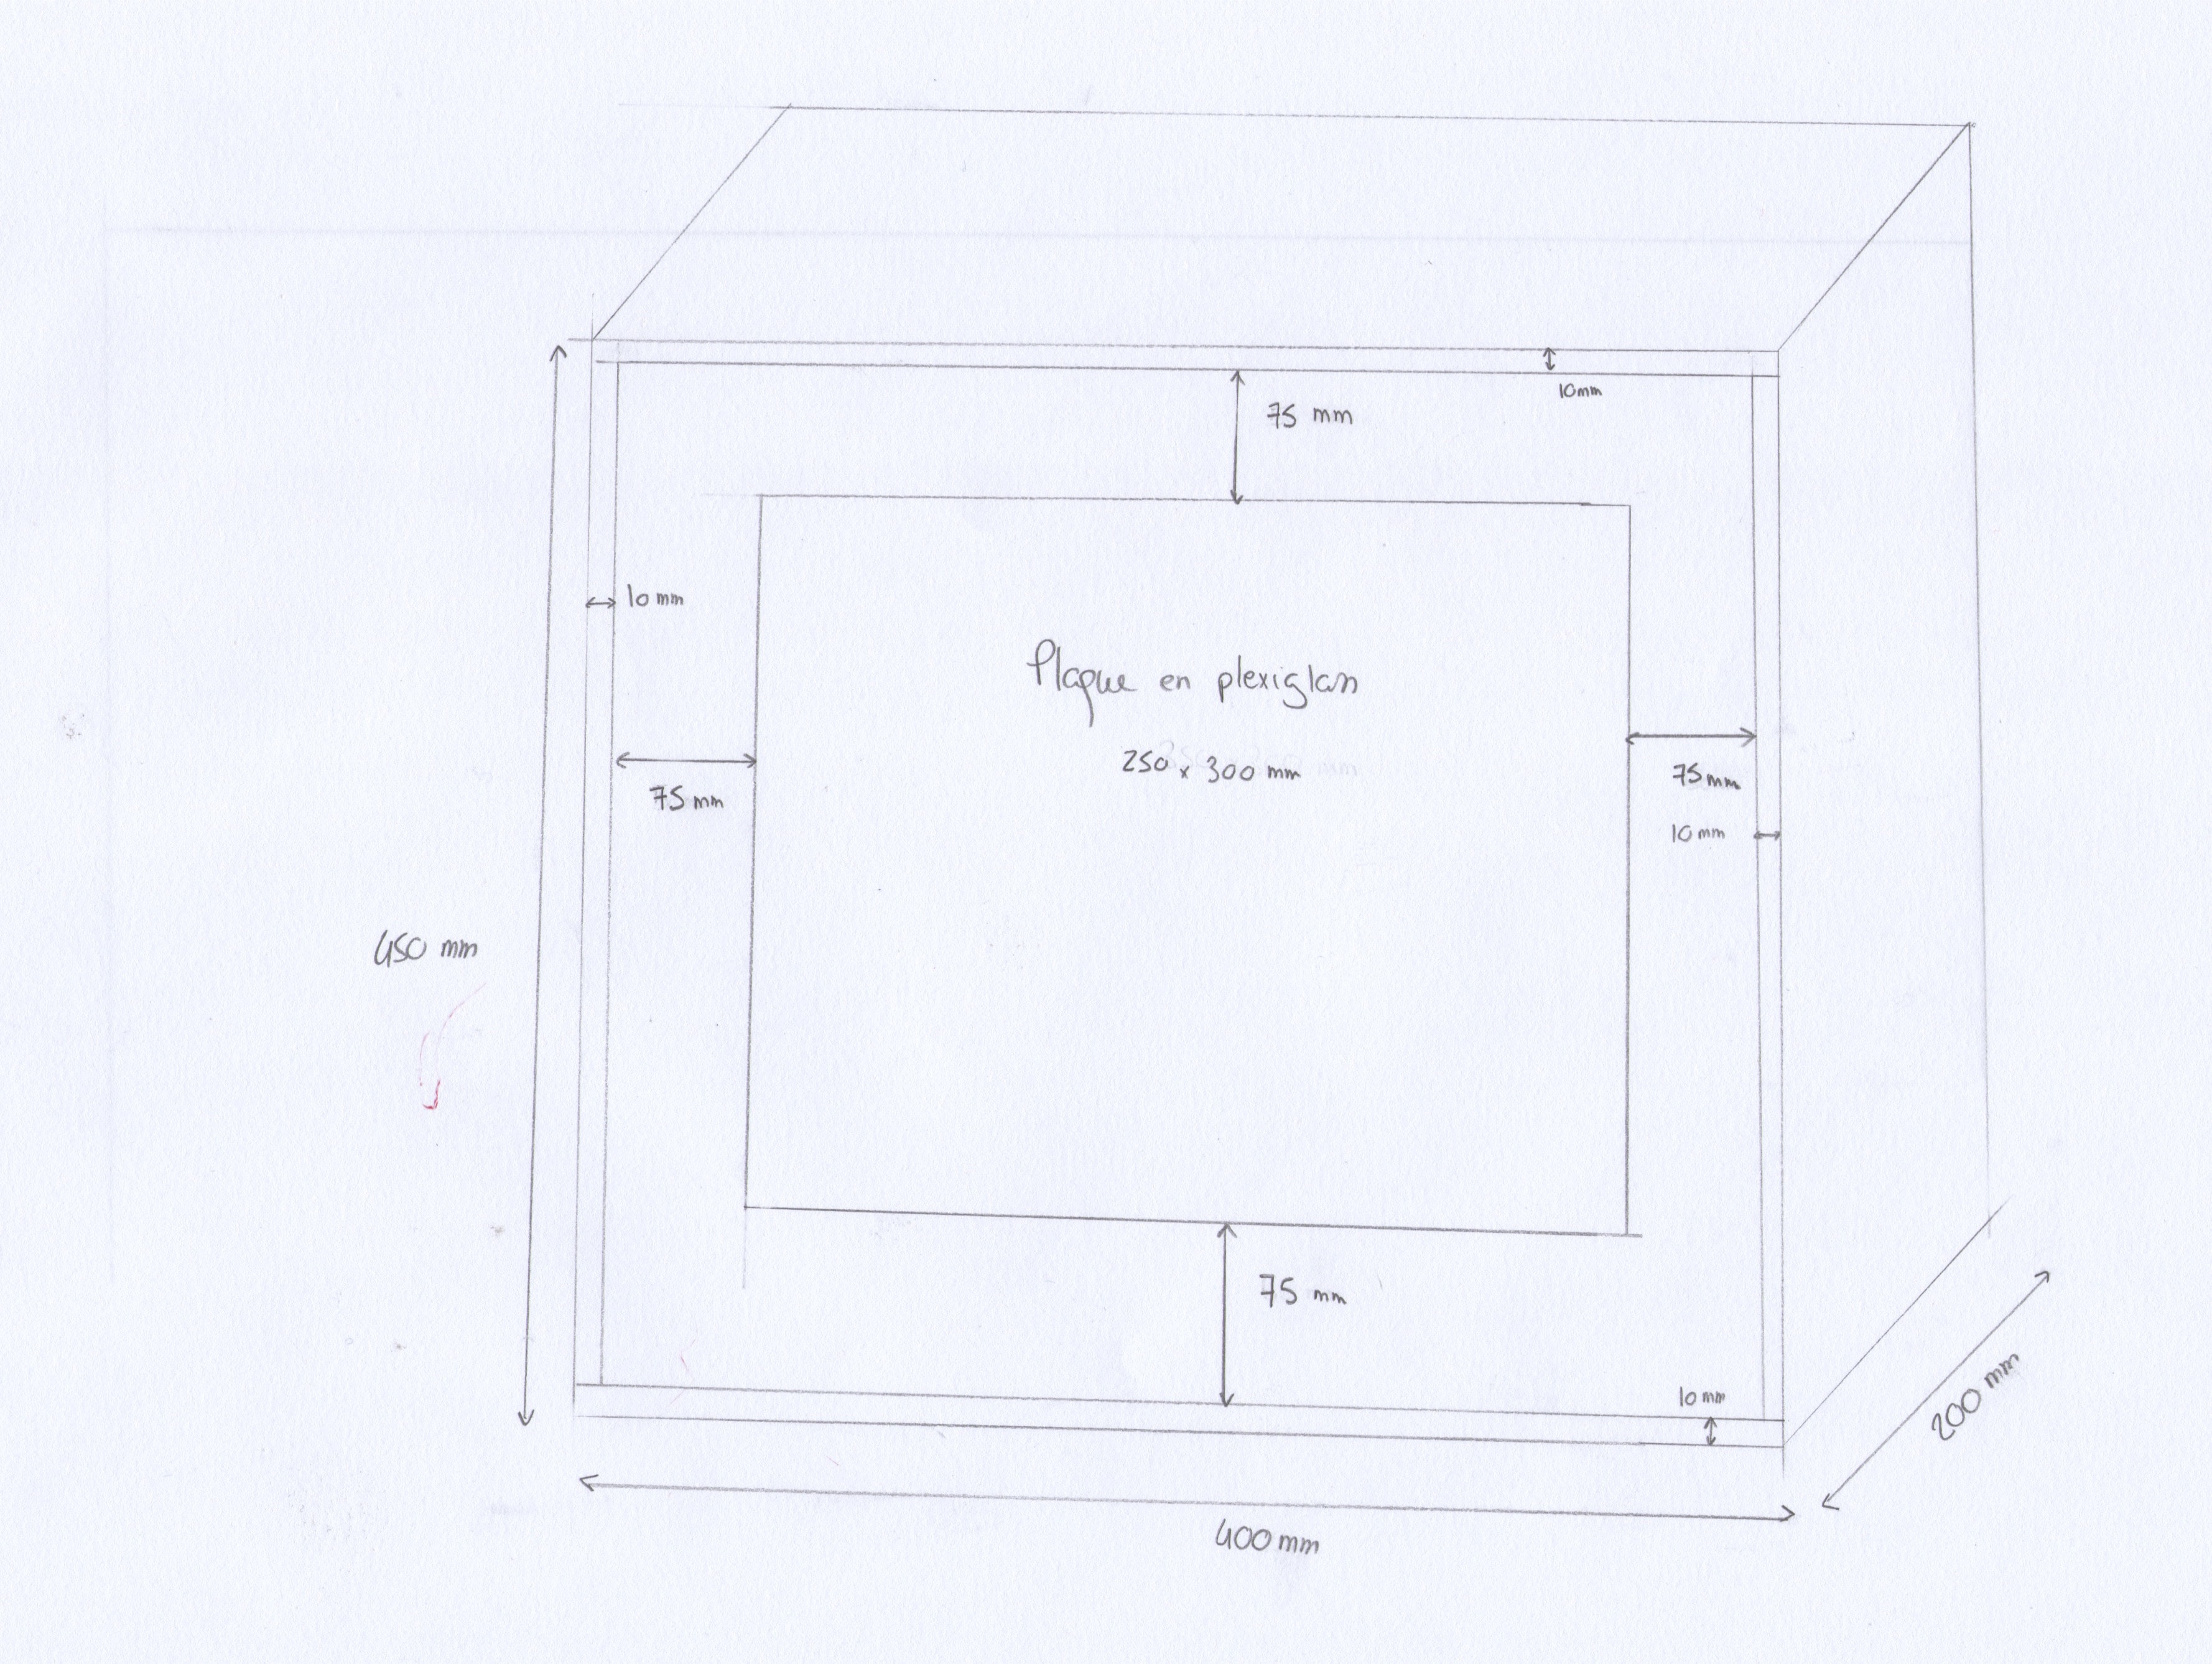 10mm
75 mm
10 mm
Plaque en plexiglass
250 x 300 mm
75 mm
75 mm
10 mm
450 mm
75 mm
10 mm
200 mm
400 mm